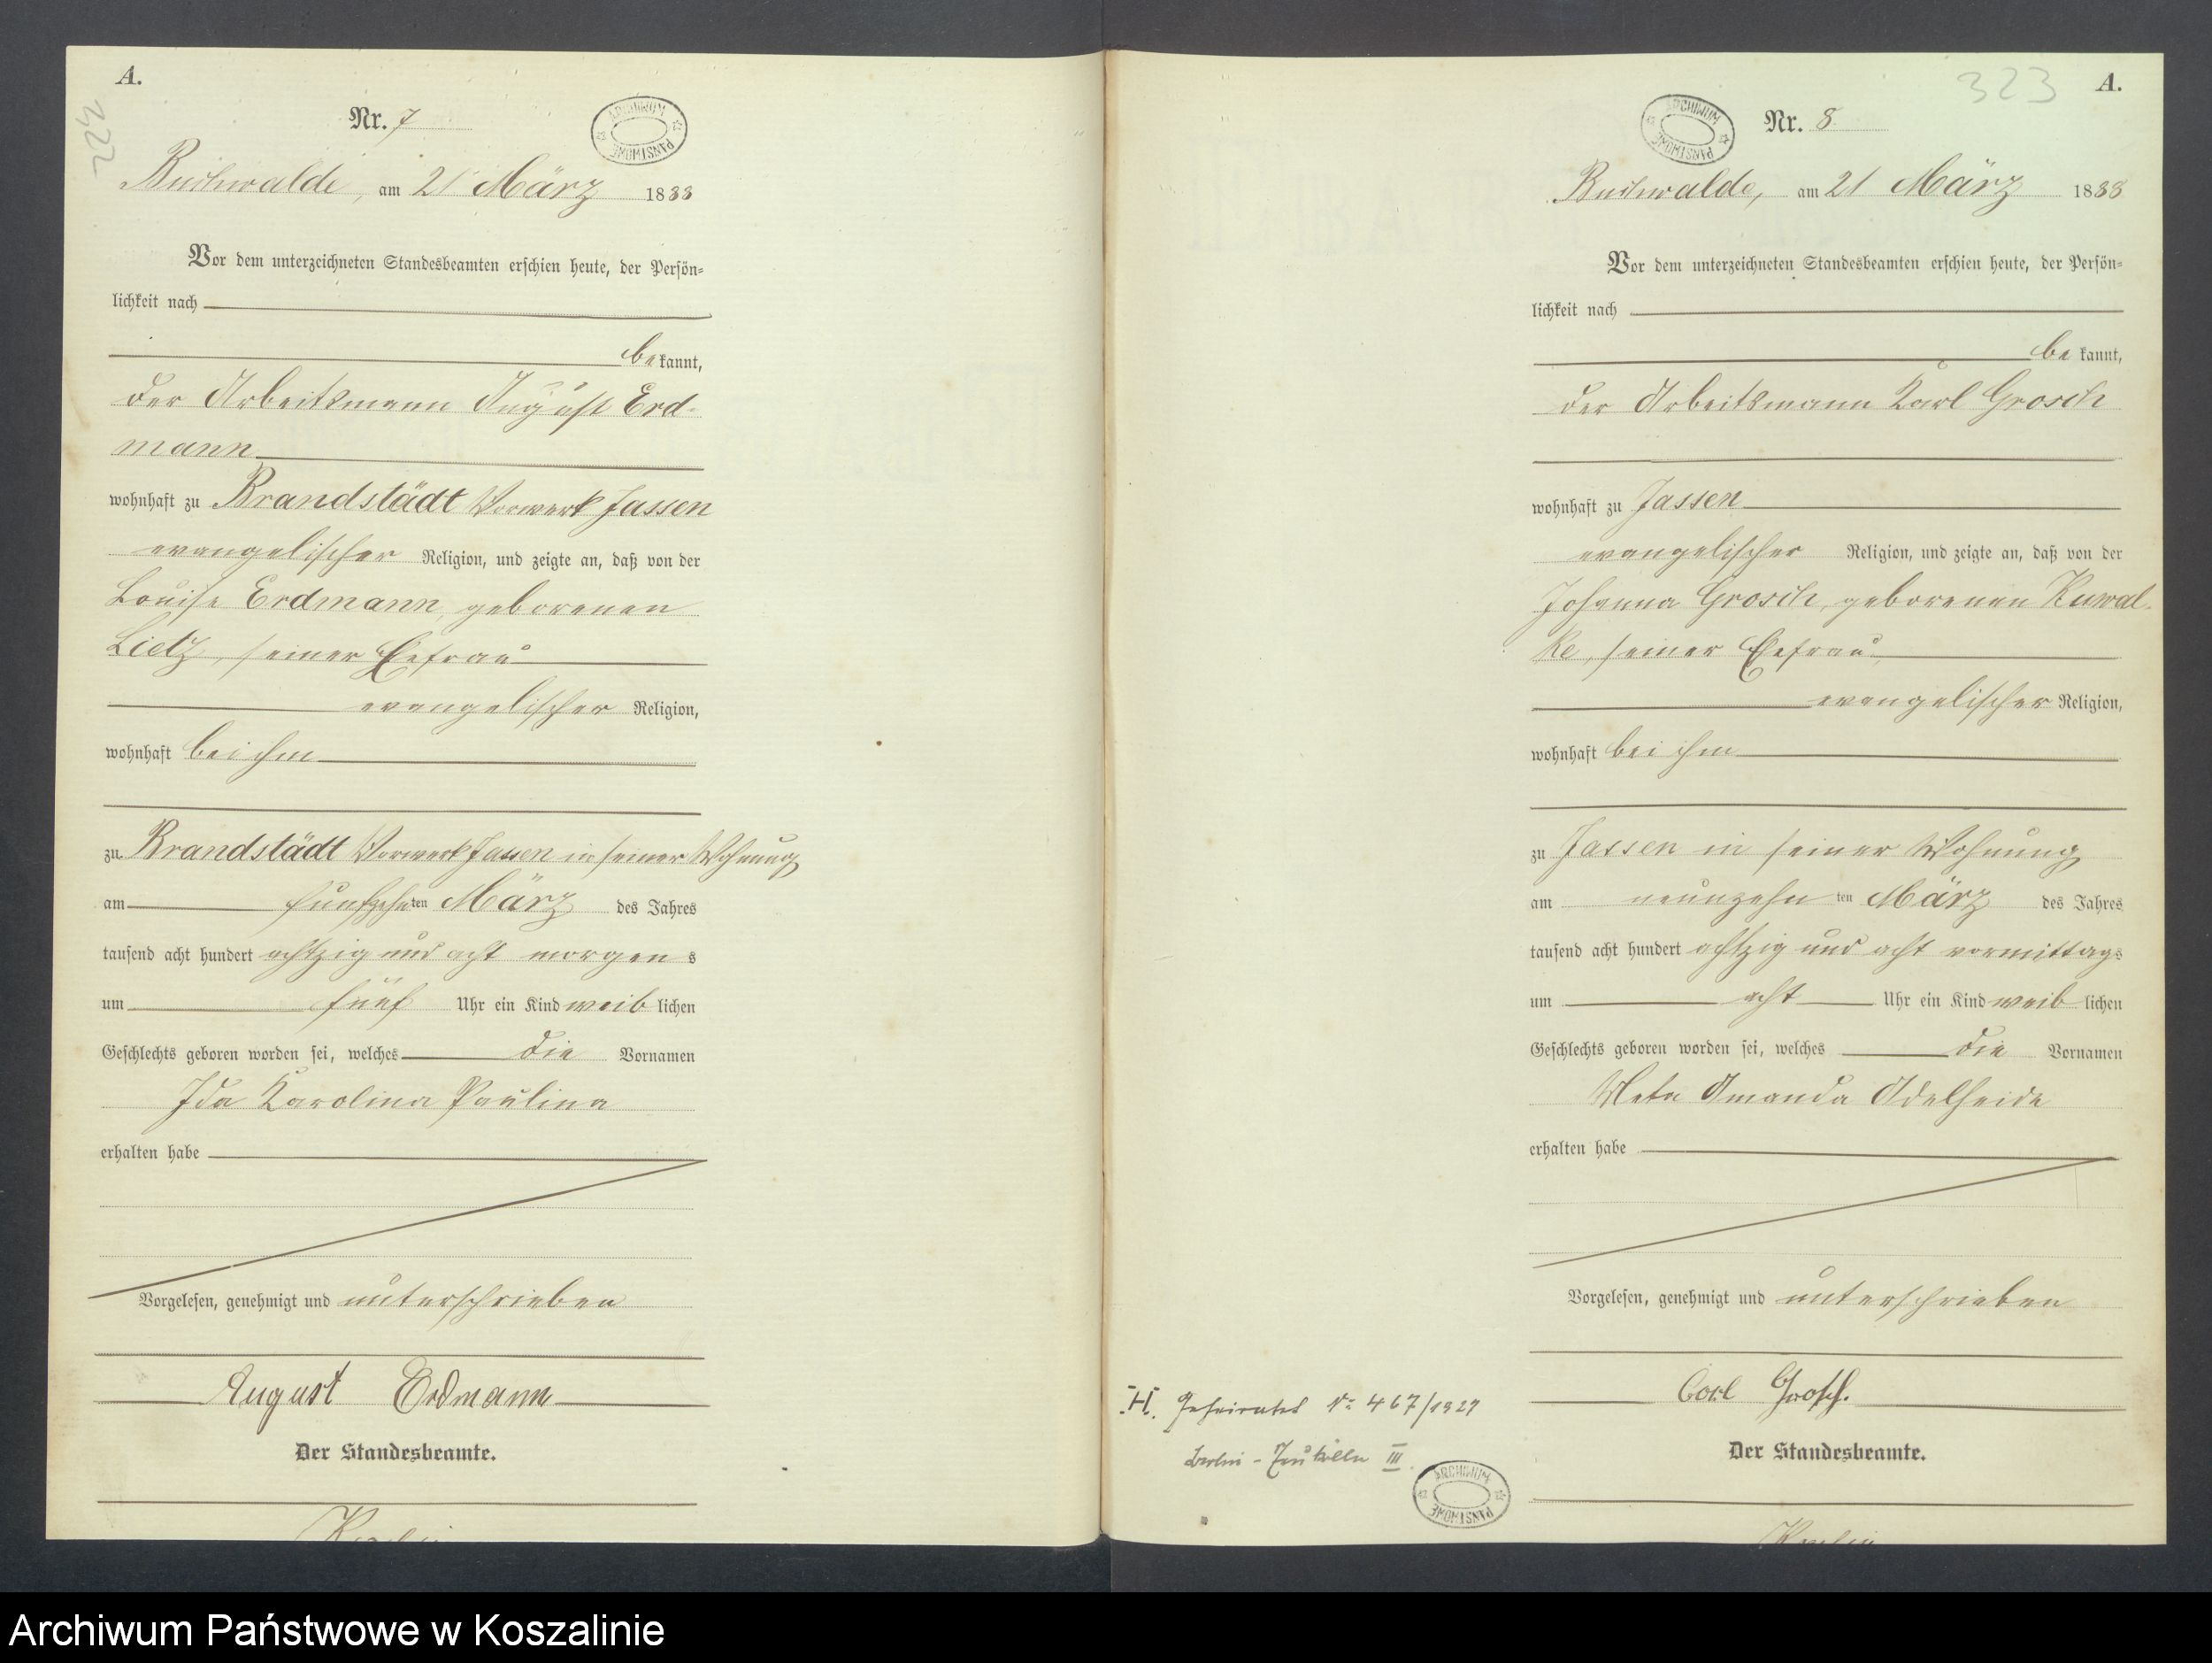 A.
322
Nr. 7
ARCHIWUM PAŃSTWOWE
Buchwalde, am 21 März 1888
Vor dem unterzeichneten Standesbeamten erschien heute, der Persön-
lichkeit nach
bekannt,
der Arbeitsmann August Erd-
mann
wohnhaft zu Brandstädt Vorwerk Jassen
evangelischer Religion, und zeigte an, daß von der
Louise Erdmann, geborenen
Lietz, seiner Ehefrau
evangelischer Religion,
wohnhaft bei ihm
zu Brandstädt Vorwerk Jassen in seiner Wohnung
am fünfzehnten März des Jahres
tausend acht hundert achtzig und acht morgens
um fünf Uhr ein Kind weiblichen
Geschlechts geboren worden sei, welches die Vornamen
Ida Karolina Paulina
erhalten habe
Vorgelesen, genehmigt und unterschrieben
August Erdmann
Der Standesbeamte.
323
A.
ARCHIWUM PAŃSTWOWE
Nr. 8
Buchwalde, am 21 März 1888
Vor dem unterzeichneten Standesbeamten erschien heute, der Persön-
lichkeit nach
bekannt,
der Arbeitsmann Karl Grosch
wohnhaft zu Jassen
evangelischer Religion, und zeigte an, daß von der
Johanna Grosch, geborenen Kuwal-
ke, seiner Ehefrau
evangelischer Religion,
wohnhaft bei ihm
zu Jassen in seiner Wohnung
am neunzehnten März des Jahres
tausend acht hundert achtzig und acht vormittags
um acht Uhr ein Kind weiblichen
Geschlechts geboren worden sei, welches die Vornamen
Meta Amanda Adelheide
erhalten habe
Vorgelesen, genehmigt und unterschrieben
Carl Grosch.
Der Standesbeamte.
H. Geheiratet Nr 467/1927
Berlin-Neukölln III.
ARCHIWUM PAŃSTWOWE
Archiwum Państwowe w Koszalinie